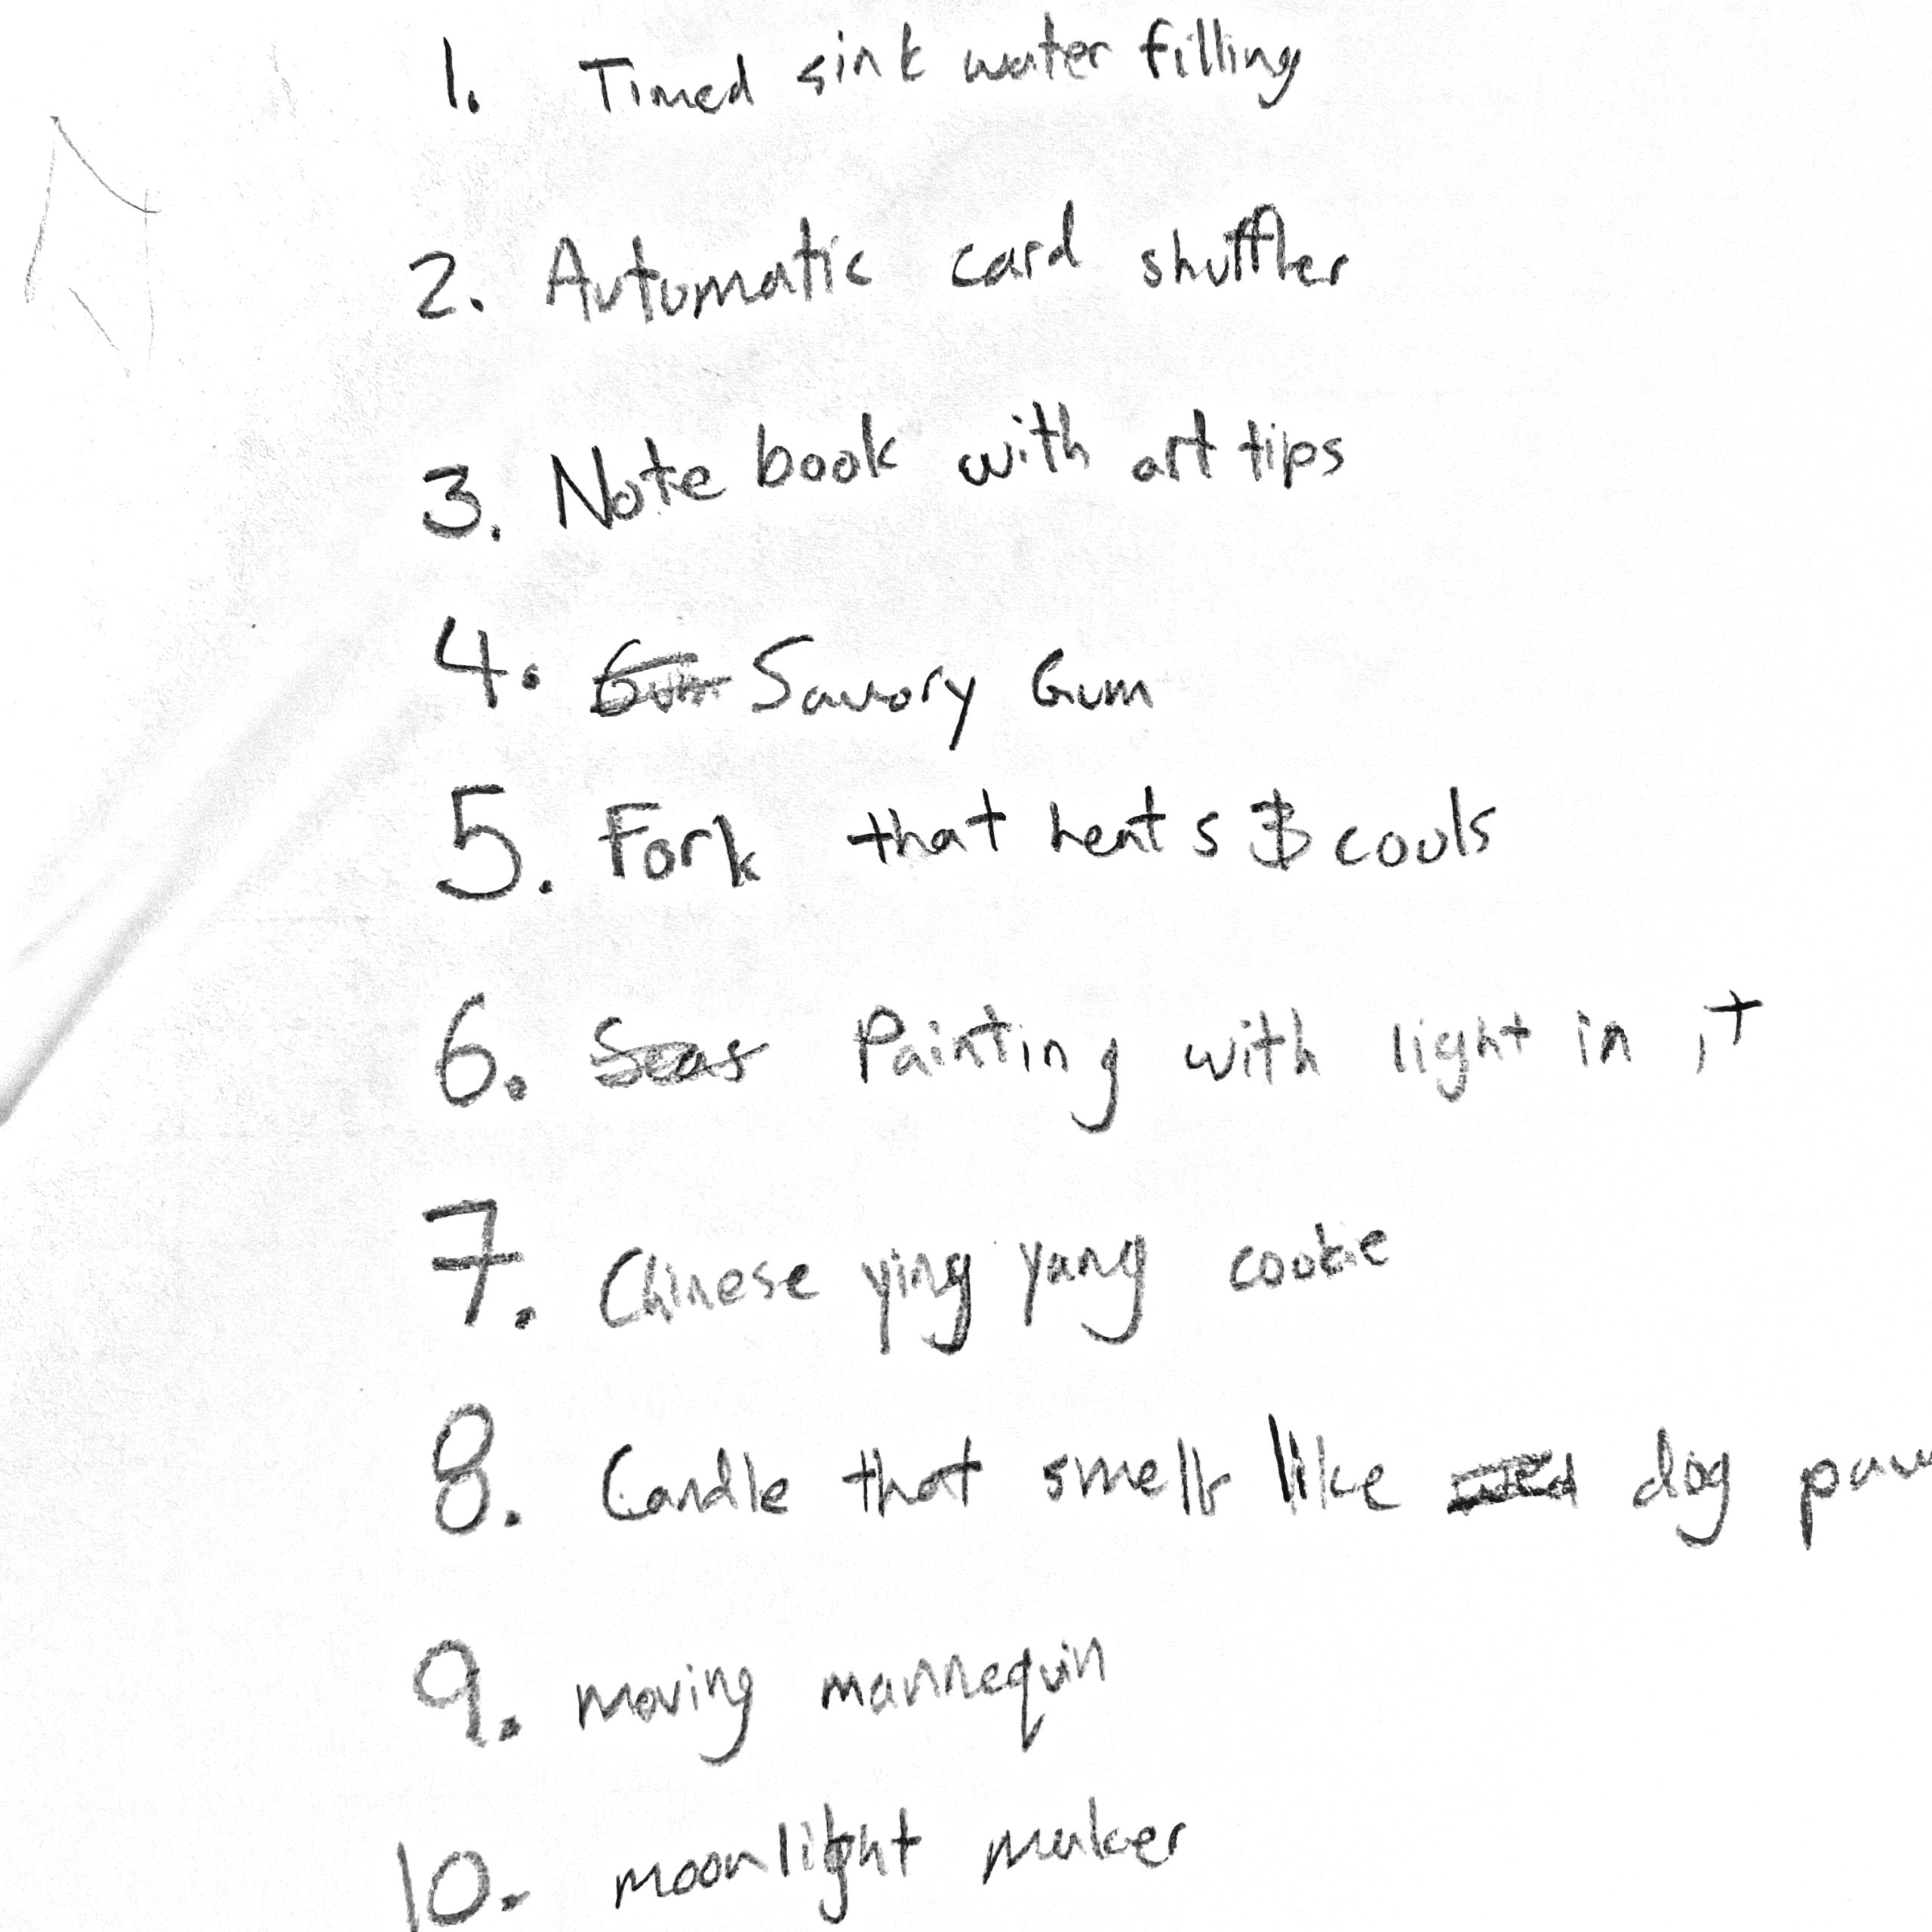 1. Timed sink water filling
2. Automatic card shuffler
3. Note book with art tips
4. Savory Gum
5. Fork that heats & cools
6. Painting with light in it
7. Chinese ying yang cookie
8. Candle that smells like dog paw
9. moving mannequin
10. moonlight maker